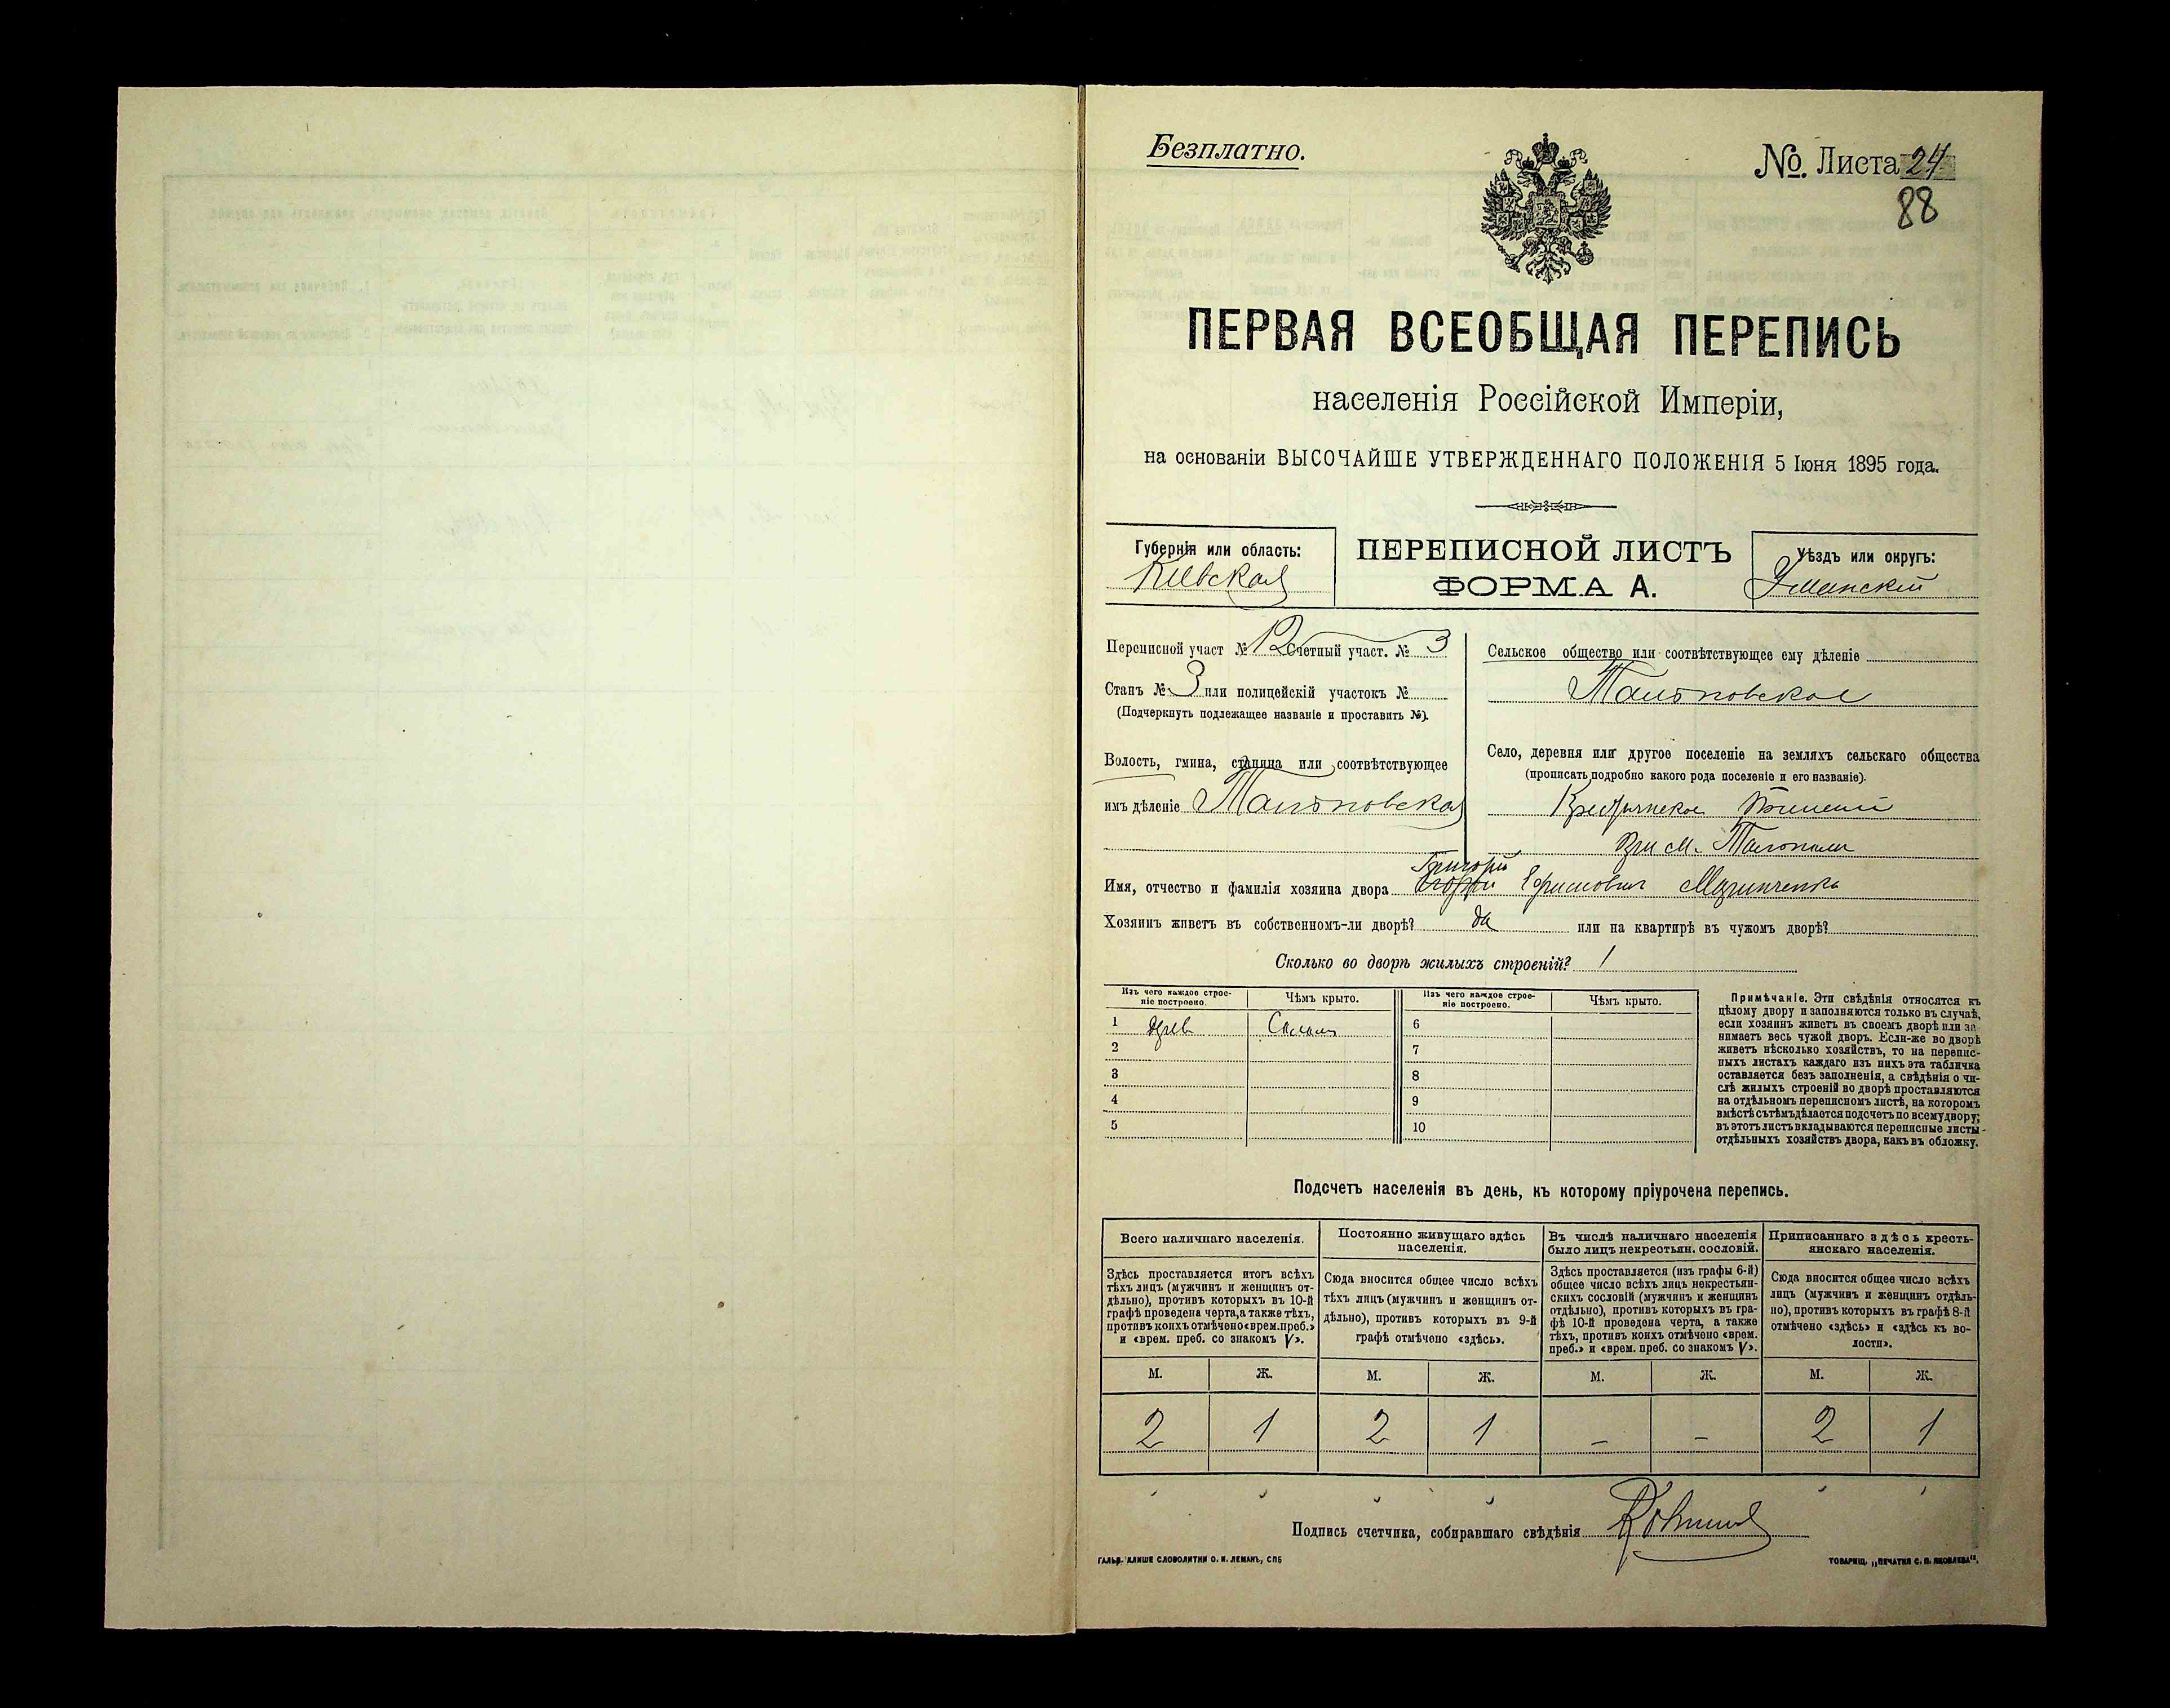 Безплатно.
№. Листа 24
88
ПЕРВАЯ ВСЕОБЩАЯ ПЕРЕПИСЬ
населенія Россійской Имперіи,
на основаніи ВЫСОЧАЙШЕ УТВЕРЖДЕННАГО ПОЛОЖЕНІЯ 5 Іюня 1895 года.
Губернія или область:
Кіевская
ПЕРЕПИСНОЙ ЛИСТЪ
ФОРМА А.
Уѣздъ или округъ:
Уманскій
Переписной участ № 12 Счетный участ. № 3
Станъ № 3 или полицейскій участокъ №
(Подчеркнуть подлежащее названіе и проставить №).
Волость, гмина, станица или соотвѣтствующее
имъ дѣленіе Тальновская
Сельское общество или соотвѣтствующее ему дѣленіе
Тальновское
Село, деревня или другое поселеніе на земляхъ сельскаго общества
(прописать подробно какого рода поселеніе и его названіе).
Крестьянское
При м. Тальномъ
Григорій
Имя, отчество и фамилія хозяина двора
Хозяинъ живетъ въ собственномъ-ли дворѣ? да или на квартирѣ въ чужомъ дворѣ?
Сколько во дворѣ жилыхъ строеній? 1
Изъ чего каждое строе-
ніе построено.
Чѣмъ крыто.
Изъ чего каждое строе-
ніе построено.
Чѣмъ крыто.
1 древ
6
2
7
3
8
4
9
5
10
Примѣчаніе. Эти свѣдѣнія относятся къ
цѣлому двору и заполняются только въ случаѣ,
если хозяинъ живетъ въ своемъ дворѣ или за
нимаетъ весь чужой дворъ. Если-же во дворѣ
живетъ нѣсколько хозяйствъ, то на перепис-
ныхъ листахъ каждаго изъ нихъ эта табличка
оставляется безъ заполненія, а свѣдѣнія о чи-
слѣ жилыхъ строеній во дворѣ проставляются
на отдѣльномъ переписномъ листѣ, на которомъ
вмѣстѣ съ тѣмъ дѣлается подсчетъ по всему двору;
въ этотъ листъ вкладываются переписные листы
отдѣльныхъ хозяйствъ двора, какъ въ обложку.
Подсчетъ населенія въ день, къ которому пріурочена перепись.
Всего наличнаго населенія.
Здѣсь проставляется итогъ всѣхъ
тѣхъ лицъ (мужчинъ и женщинъ от-
дѣльно), противъ которыхъ въ 10-й
графѣ проведена черта, а также тѣхъ,
противъ коихъ отмѣчено «врем. преб.»
и «врем. преб. со знакомъ V».
Постоянно живущаго здѣсь
населенія.
Сюда вносится общее число всѣхъ
тѣхъ лицъ (мужчинъ и женщинъ от-
дѣльно), противъ которыхъ въ 9-й
графѣ отмѣчено «здѣсь».
Въ числѣ наличнаго населенія
было лицъ некрестьян. сословій.
Здѣсь проставляется (изъ графы 6-й)
общее число всѣхъ лицъ некрестьян-
скихъ сословій (мужчинъ и женщинъ
отдѣльно), противъ которыхъ въ гра-
фѣ 10-й проведена черта, а также
тѣхъ, противъ коихъ отмѣчено «врем.
преб.» и «врем. преб. со знакомъ V».
Приписаннаго здѣсь кресть-
янскаго населенія.
Сюда вносится общее число всѣхъ
лицъ (мужчинъ и женщинъ отдѣль-
но), противъ которыхъ въ графѣ 8-й
отмѣчено «здѣсь» и «здѣсь къ во-
лости».
М. Ж. М. Ж. М. Ж. М. Ж.
2 1 2 1 – – 2 1
Подпись счетчика, собиравшаго свѣдѣнія
ГАЛЬВ. КЛИШЕ СЛОВОЛИТНИ О. И. ЛЕМАНЪ, СПБ
ТОВАРИЩ. „ПЕЧАТНЯ С. П. ЯКОВЛЕВА".